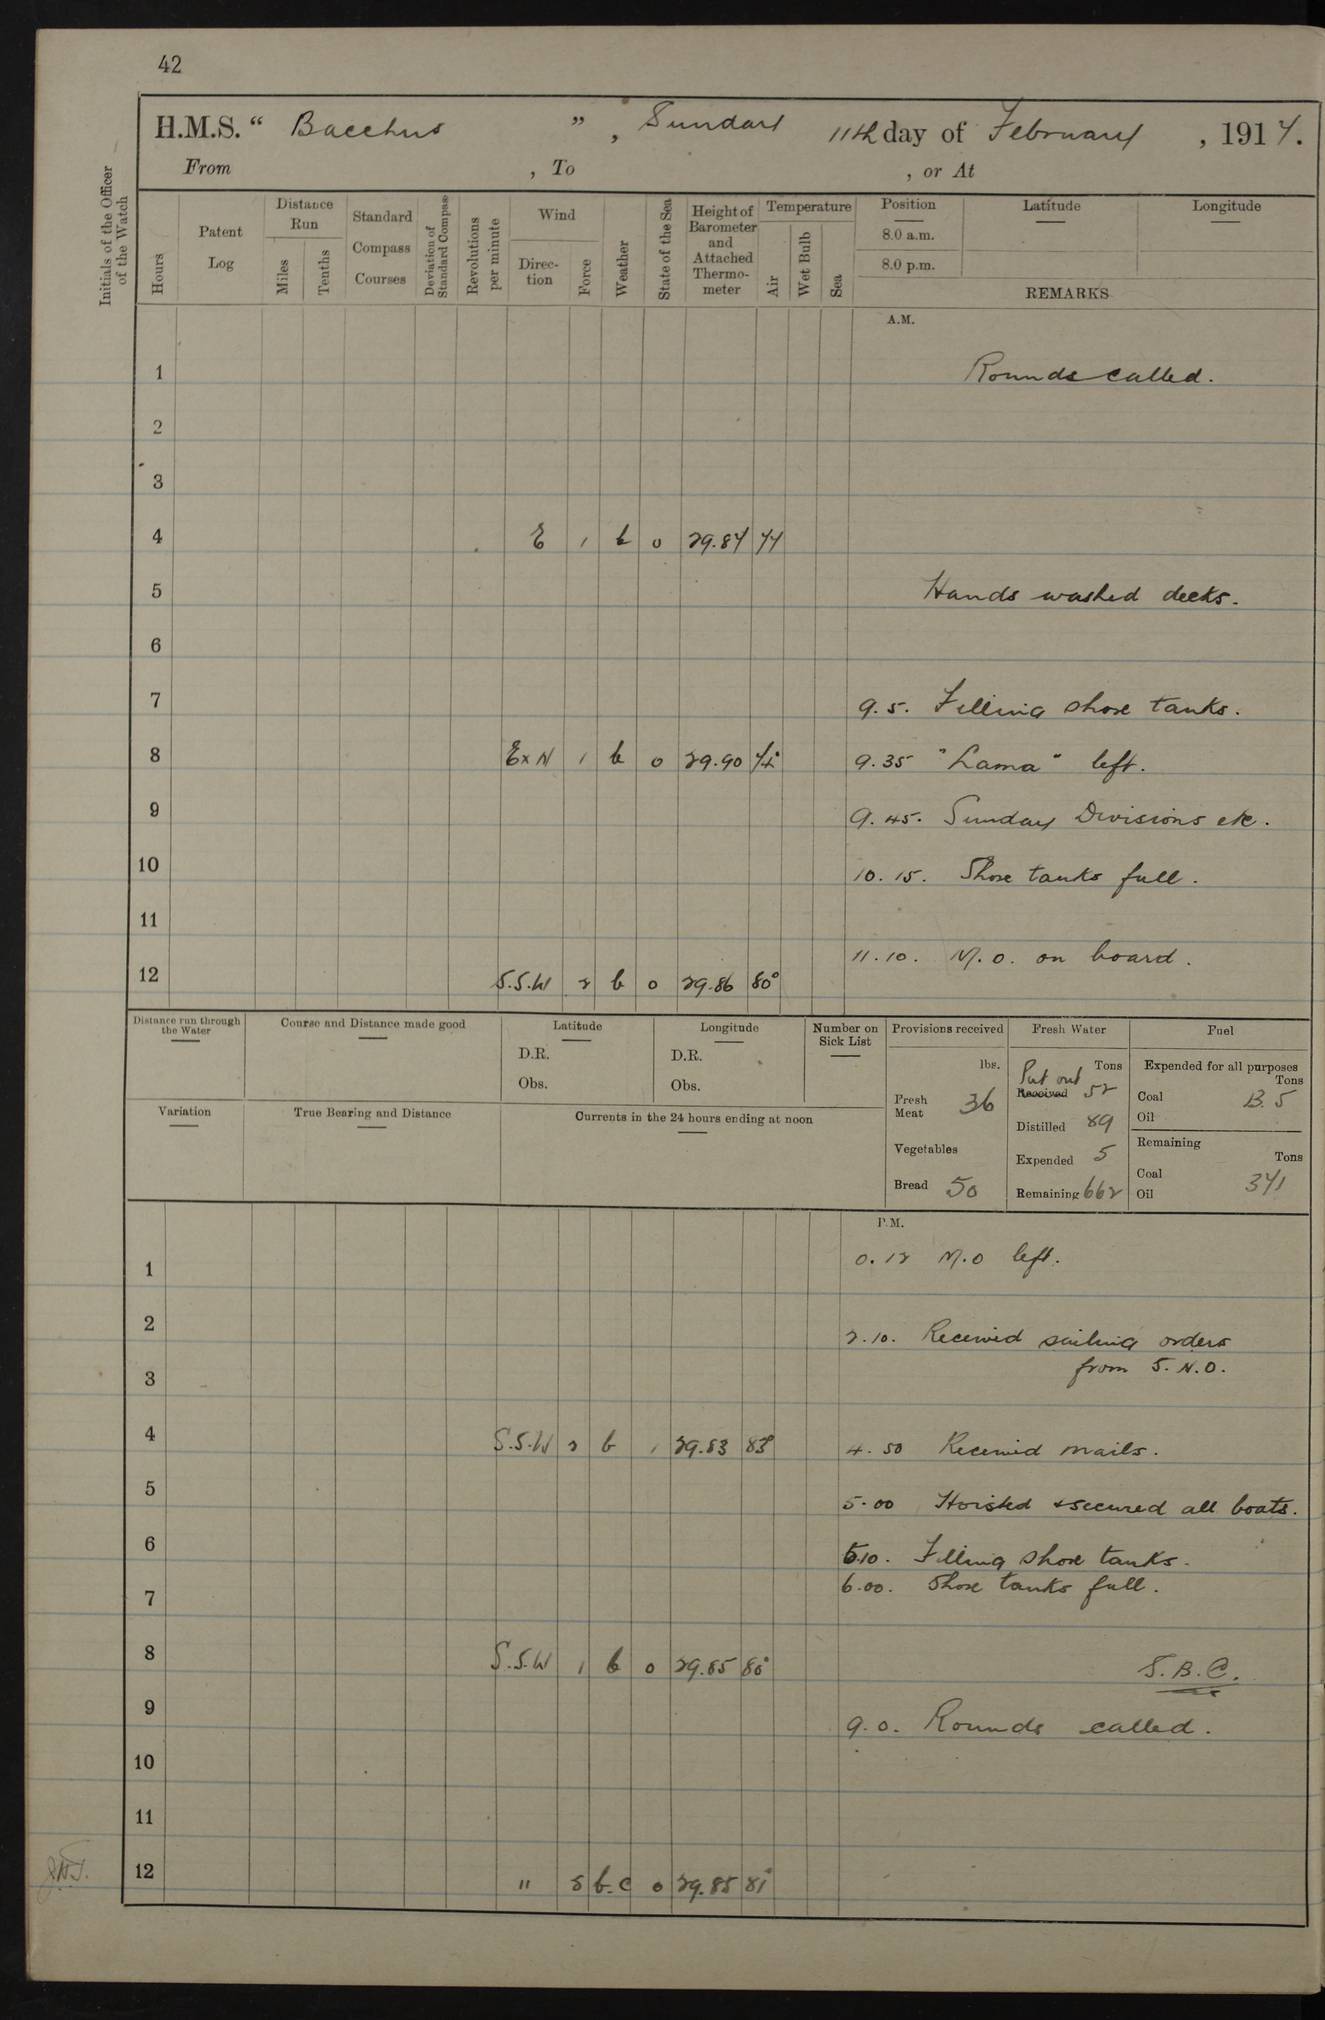 42
H.M.S. “ Bacchus ” , Sunday 11th day of February , 1917.
From , To , or At
Initials of the Officer of the Watch
Hours
Patent Log
Distance Run
Miles
Tenths
Standard Compass Courses
Deviation of Standard Compass
Revolutions per minute
Wind
Direc-tion
Force
Weather
State of the Sea
Height of Barometer and Attached Thermo-meter
Temperature
Air
Wet Bulb
Sea
Position
8.0 a.m.
8.0 p.m.
Latitude
Longitude
REMARKS
A.M.
1 Rounds called.
2
3
4 E 1 b 0 29.87 77
5 Hands washed decks.
6
7 9.5. Filling shore tanks.
8 ExN 1 b 0 29.90 9.35 "Lama" left.
9 9.45. Sunday Divisions etc.
10 10.15. Shore tanks full.
11
11.10. M.O. on board.
12 S.S.W 2 b 0 29.86 80°
Distance run through the Water
Course and Distance made good
Latitude
D.R.
Obs.
Longitude
D.R.
Obs.
Number on Sick List
Provisions received
lbs.
Fresh Meat 36
Vegetables
Bread 50
Fresh Water
Tons
Put out
Received 52
Distilled 89
Expended 5
Remaining 662
Fuel
Expended for all purposes
Tons
Coal 13.5
Oil
Remaining
Tons
Coal 371
Oil
Variation
True Bearing and Distance
Currents in the 24 hours ending at noon
P.M.
0.12 M.O left.
1
2 2.10. Received sailing orders
from S.N.O.
3
4 S.S.W 2 b 1 29.83 83° 4.50 Received mails.
5 5.00 Hoisted & secured all boats.
6 5.10. Filling shore tanks.
6.00. Shore tanks full.
7
8 S.S.W 1 b 0 29.85 80° S.B.C.
9 9.0. Rounds called.
10
11
12 " b.c 0 29.85 81°